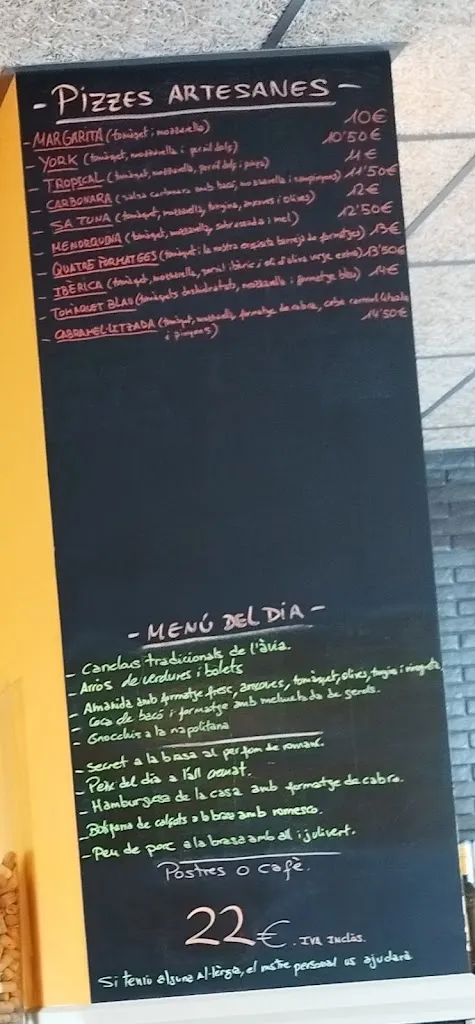 - PIZZES ARTESANES -
- MARGARITA (tomàquet i mozzarella) 10€
- YORK (tomàquet, mozzarella i pernil dolç) 10'50€
- TROPICAL (tomàquet, mozzarella, pernil dolç i pinya) 11€
- CARBONARA (salsa carbonara amb bacó, mozzarella i xampinyons) 11'50€
- SA TUNA (tomàquet, mozzarella, tonyina, anxoves i olives) 12€
- MENORQUINA (tomàquet, mozzarella, sobrassada i mel) 12'50€
- QUATRE FORMATGES (tomàquet i la nostra exquisita barreja de formatges) 13€
- IBÈRICA (tomàquet, mozzarella, pernil ibèric i oli d'oliva verge extra) 13'50€
- TOMÀQUET BLAU (tomàquets deshidratats, mozzarella i formatge blau) 14€
- CABRAMEL·LITZADA (tomàquet, mozzarella, formatge de cabra, ceba caramel·litzada
i pinyons) 14'50€
- MENÚ DEL DIA -
- Canelons tradicionals de l'àvia.
- Arròs de verdures i bolets
- Amanida amb formatge fresc, anxoves, tomàquet, olives, tonyina i vinagreta
- Coca de bacó i formatge amb melmelada de gerds.
- Gnocchis a la napolitana
- Secret a la brasa al perfum de romaní.
- Peix del dia a l'all cremat.
- Hamburguesa de la casa amb formatge de cabra.
- Botifarra de calçots a la brasa amb romesco.
- Peu de porc a la brasa amb all i julivert.
Postres o cafè.
22€. IVA Inclòs.
Si teniu alguna al·lèrgia, el nostre personal us ajudarà